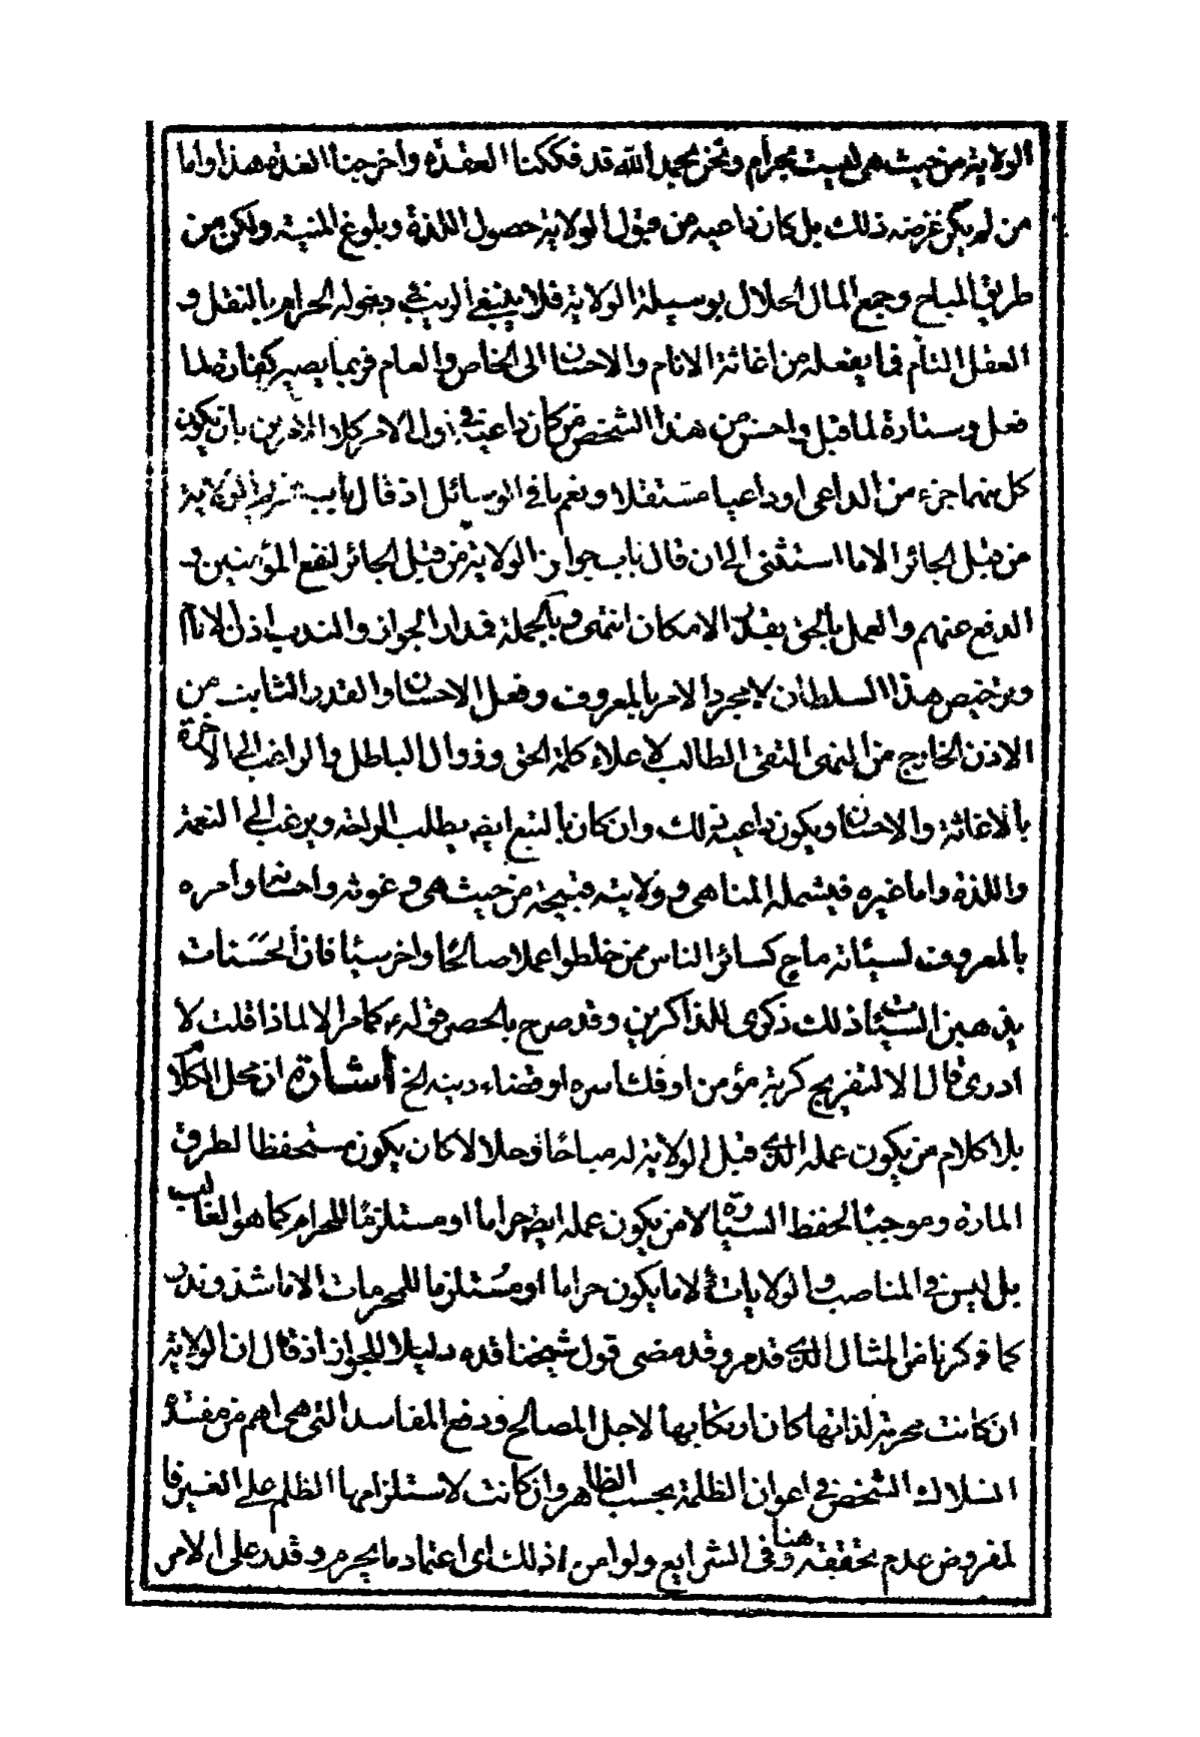 الولاية من حيث هى ليست بحرام ونحن بحمد الله قد فككنا العقدة واخرجنا الغدة هذا واما
من لم يكن غرضه ذلك بل كان داعيه من قبول الولاية حصول اللذة وبلوغ المنية ولكن من
طريق المباح وجمع المال الحلال بوسيلة الولاية فلا ينبغى الريب فى دخوله الحرام بالنقل و
العقل التام فما يفعله من اغاثة الانام والاحسان الى الخاص والعام فربما يصير كفارة لما
فعل وستارة لما قبل واحسن من هذا الشخص من كان داعيه فى اول الامر كلا الامرين بان يكون
كل منهما جزء من الداعى او داعيا مستقلا ونعم ما فى الوسائل اذ قال باب تحريم الولاية
من قبل الجائر الا ما استثنى الى ان قال باب جواز الولاية من قبل الجائر لنفع المؤمنين و
الدفع عنهم والعمل بالحق بقدر الامكان انتهى وبالجملة فمدار الجواز والندب اذن الامام
وترخيص هذا السلطان لا مجرد الامر بالمعروف وفعل الاحسان والقدر الثابت من
الاذن الخارج من النهى التقى الطالب لاعلاء كلمة الحق وزوال الباطل والراغب الى الاخرة
بالاغاثة والاحسان ويكون داعيه ذلك وان كان بالتبع ايضا يطلب الراحة ويرغب الى النعمة
واللذة واما غيره فيشمله المناهى و ولايته قبيحة من حيث هى و غوثه واحسانه وامره
بالمعروف لسيئاته ماح كسائر الناس ممن خلطوا عملا صالحا واخر سيئا فان الحسنات
يذهبن السيئات ذلك ذكرى للذاكرين وقد صرح بالحصر قوله ع كما مر الا لماذا قلت لا
ادرى قال الا لتفريج كربة مؤمن او فك اسره او قضاء دينه الخ اشارة ان محل الكلام
بلا كلام من يكون عمله الذى قبل الولاية له مباحا وحلالا كان يكون مستحفظا لطرق
المارة وموجبا لحفظ السيارة لا من يكون عمله ايضا حراما او مستلزما للحرام كما هو الغالب
بل ليس فى المناصب والولايات الا ما يكون حراما او مستلزما للمحرمات الا ما شذ وندر
كما ذكرنا من المثال الذى قد مر وقد مضى قول شيخنا قده دليلا للجواز اذ قال ان الولاية
ان كانت محرمة لذاتها كان ارتكابها لاجل المصالح ودفع المفاسد التى هى اهم من مفسدة
انسلاك الشخص فى اعوان الظلمة بحسب الظاهر وان كانت لاستلزامها الظلم على الغير فا
لمفروض عدم تحققه هنا وفى الشرايع ولو امن ذلك اى اعتماد ما يحرم وقدر على الامر